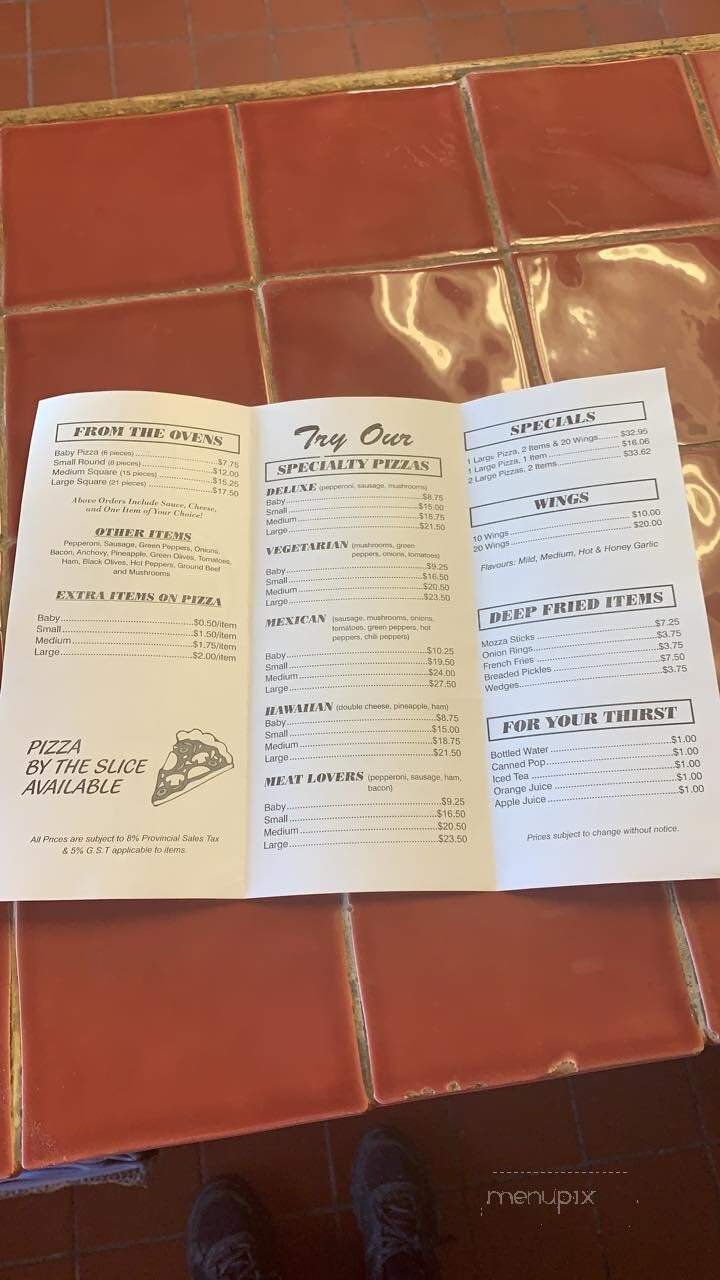 FROM THE OVENS
Baby Pizza (6 pieces) ..........$7.75
Small Round (8 pieces) ..........$12.00
Medium Square (15 pieces) ..........$15.25
Large Square (21 pieces) ..........$17.50
Above Orders Include Sauce, Cheese,
and One Item of Your Choice!
OTHER ITEMS
Pepperoni, Sausage, Green Peppers, Onions,
Bacon, Anchovy, Pineapple, Green Olives, Tomatoes,
Ham, Black Olives, Hot Peppers, Ground Beef
and Mushrooms
EXTRA ITEMS ON PIZZA
Baby..........$0.50/item
Small..........$1.50/item
Medium..........$1.75/item
Large..........$2.00/item
PIZZA
BY THE SLICE
AVAILABLE
All Prices are subject to 8% Provincial Sales Tax
& 5% G.S.T applicable to items.
Try Our
SPECIALTY PIZZAS
DELUXE (pepperoni, sausage, mushrooms)
Baby..........$8.75
Small..........$15.00
Medium..........$18.75
Large..........$21.50
VEGETARIAN (mushrooms, green
peppers, onions, tomatoes)
Baby..........$9.25
Small..........$16.50
Medium..........$20.50
Large..........$23.50
MEXICAN (sausage, mushrooms, onions,
tomatoes, green peppers, hot
peppers, chili peppers)
Baby..........$10.25
Small..........$19.50
Medium..........$24.00
Large..........$27.50
HAWAIIAN (double cheese, pineapple, ham)
Baby..........$8.75
Small..........$15.00
Medium..........$18.75
Large..........$21.50
MEAT LOVERS (pepperoni, sausage, ham,
bacon)
Baby..........$9.25
Small..........$16.50
Medium..........$20.50
Large..........$23.50
SPECIALS
1 Large Pizza, 2 Items & 20 Wings.......... $32.95
1 Large Pizza, 1 Item .......... $16.06
2 Large Pizzas, 2 Items.......... $33.62
WINGS
10 Wings .......... $10.00
20 Wings .......... $20.00
Flavours: Mild, Medium, Hot & Honey Garlic
DEEP FRIED ITEMS
Mozza Sticks ..........$7.25
Onion Rings..........$3.75
French Fries ..........$3.75
Breaded Pickles ..........$7.50
Wedges..........$3.75
FOR YOUR THIRST
Bottled Water ..........$1.00
Canned Pop..........$1.00
Iced Tea ..........$1.00
Orange Juice ..........$1.00
Apple Juice..........$1.00
Prices subject to change without notice.
menupix